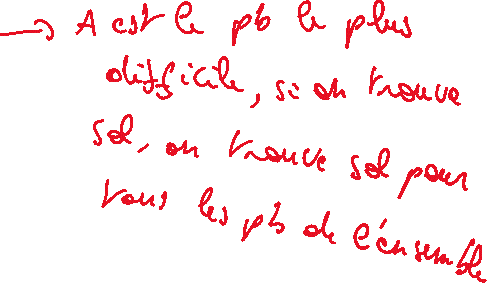 → A est le pb le plus
difficile, si on trouve
sol, on trouve sol pour
tous les pb de l'ensemble